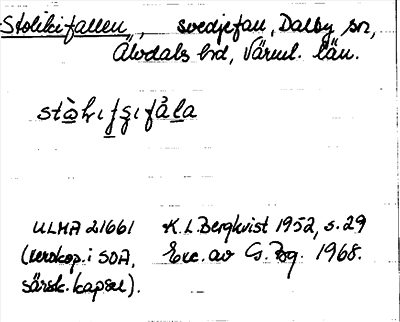 Stolikifallen, svedjefall, Dalby sn,
Älvdals hd, Värml. län.
ULMA 21661 K.L. Bergkvist 1952, s. 29
(xerokop. i SOA, Exc. av G. Bg. 1968.
särsk. kapsel).